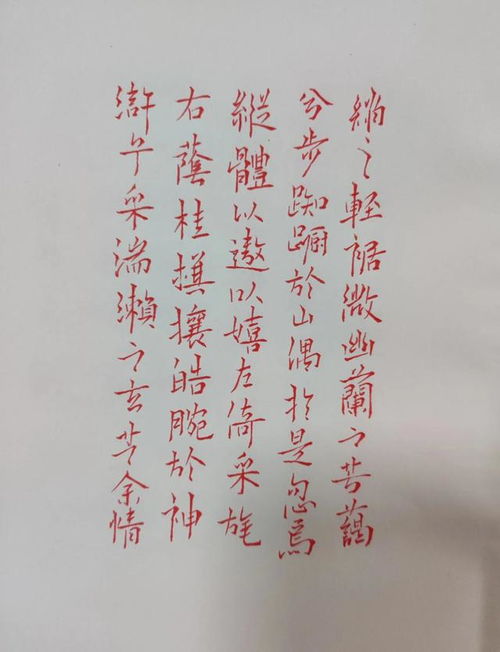 綃之輕裾微幽蘭之芳藹
兮步踟躕於山隅於是忽焉
縱體以遨以嬉左倚采旄
右蔭桂旗攘皓腕於神
滸兮采湍瀨之玄芝余情